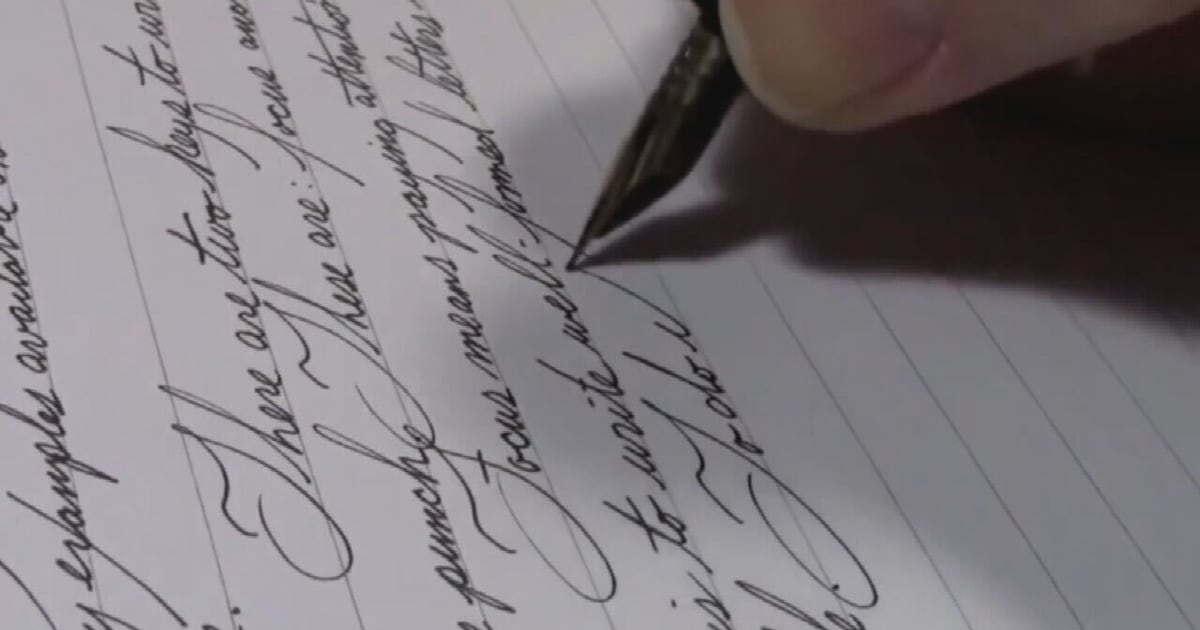 examples available on
There are two keys to
These are: focus and
Focus means paying attention
is to write well-formed letters
To do